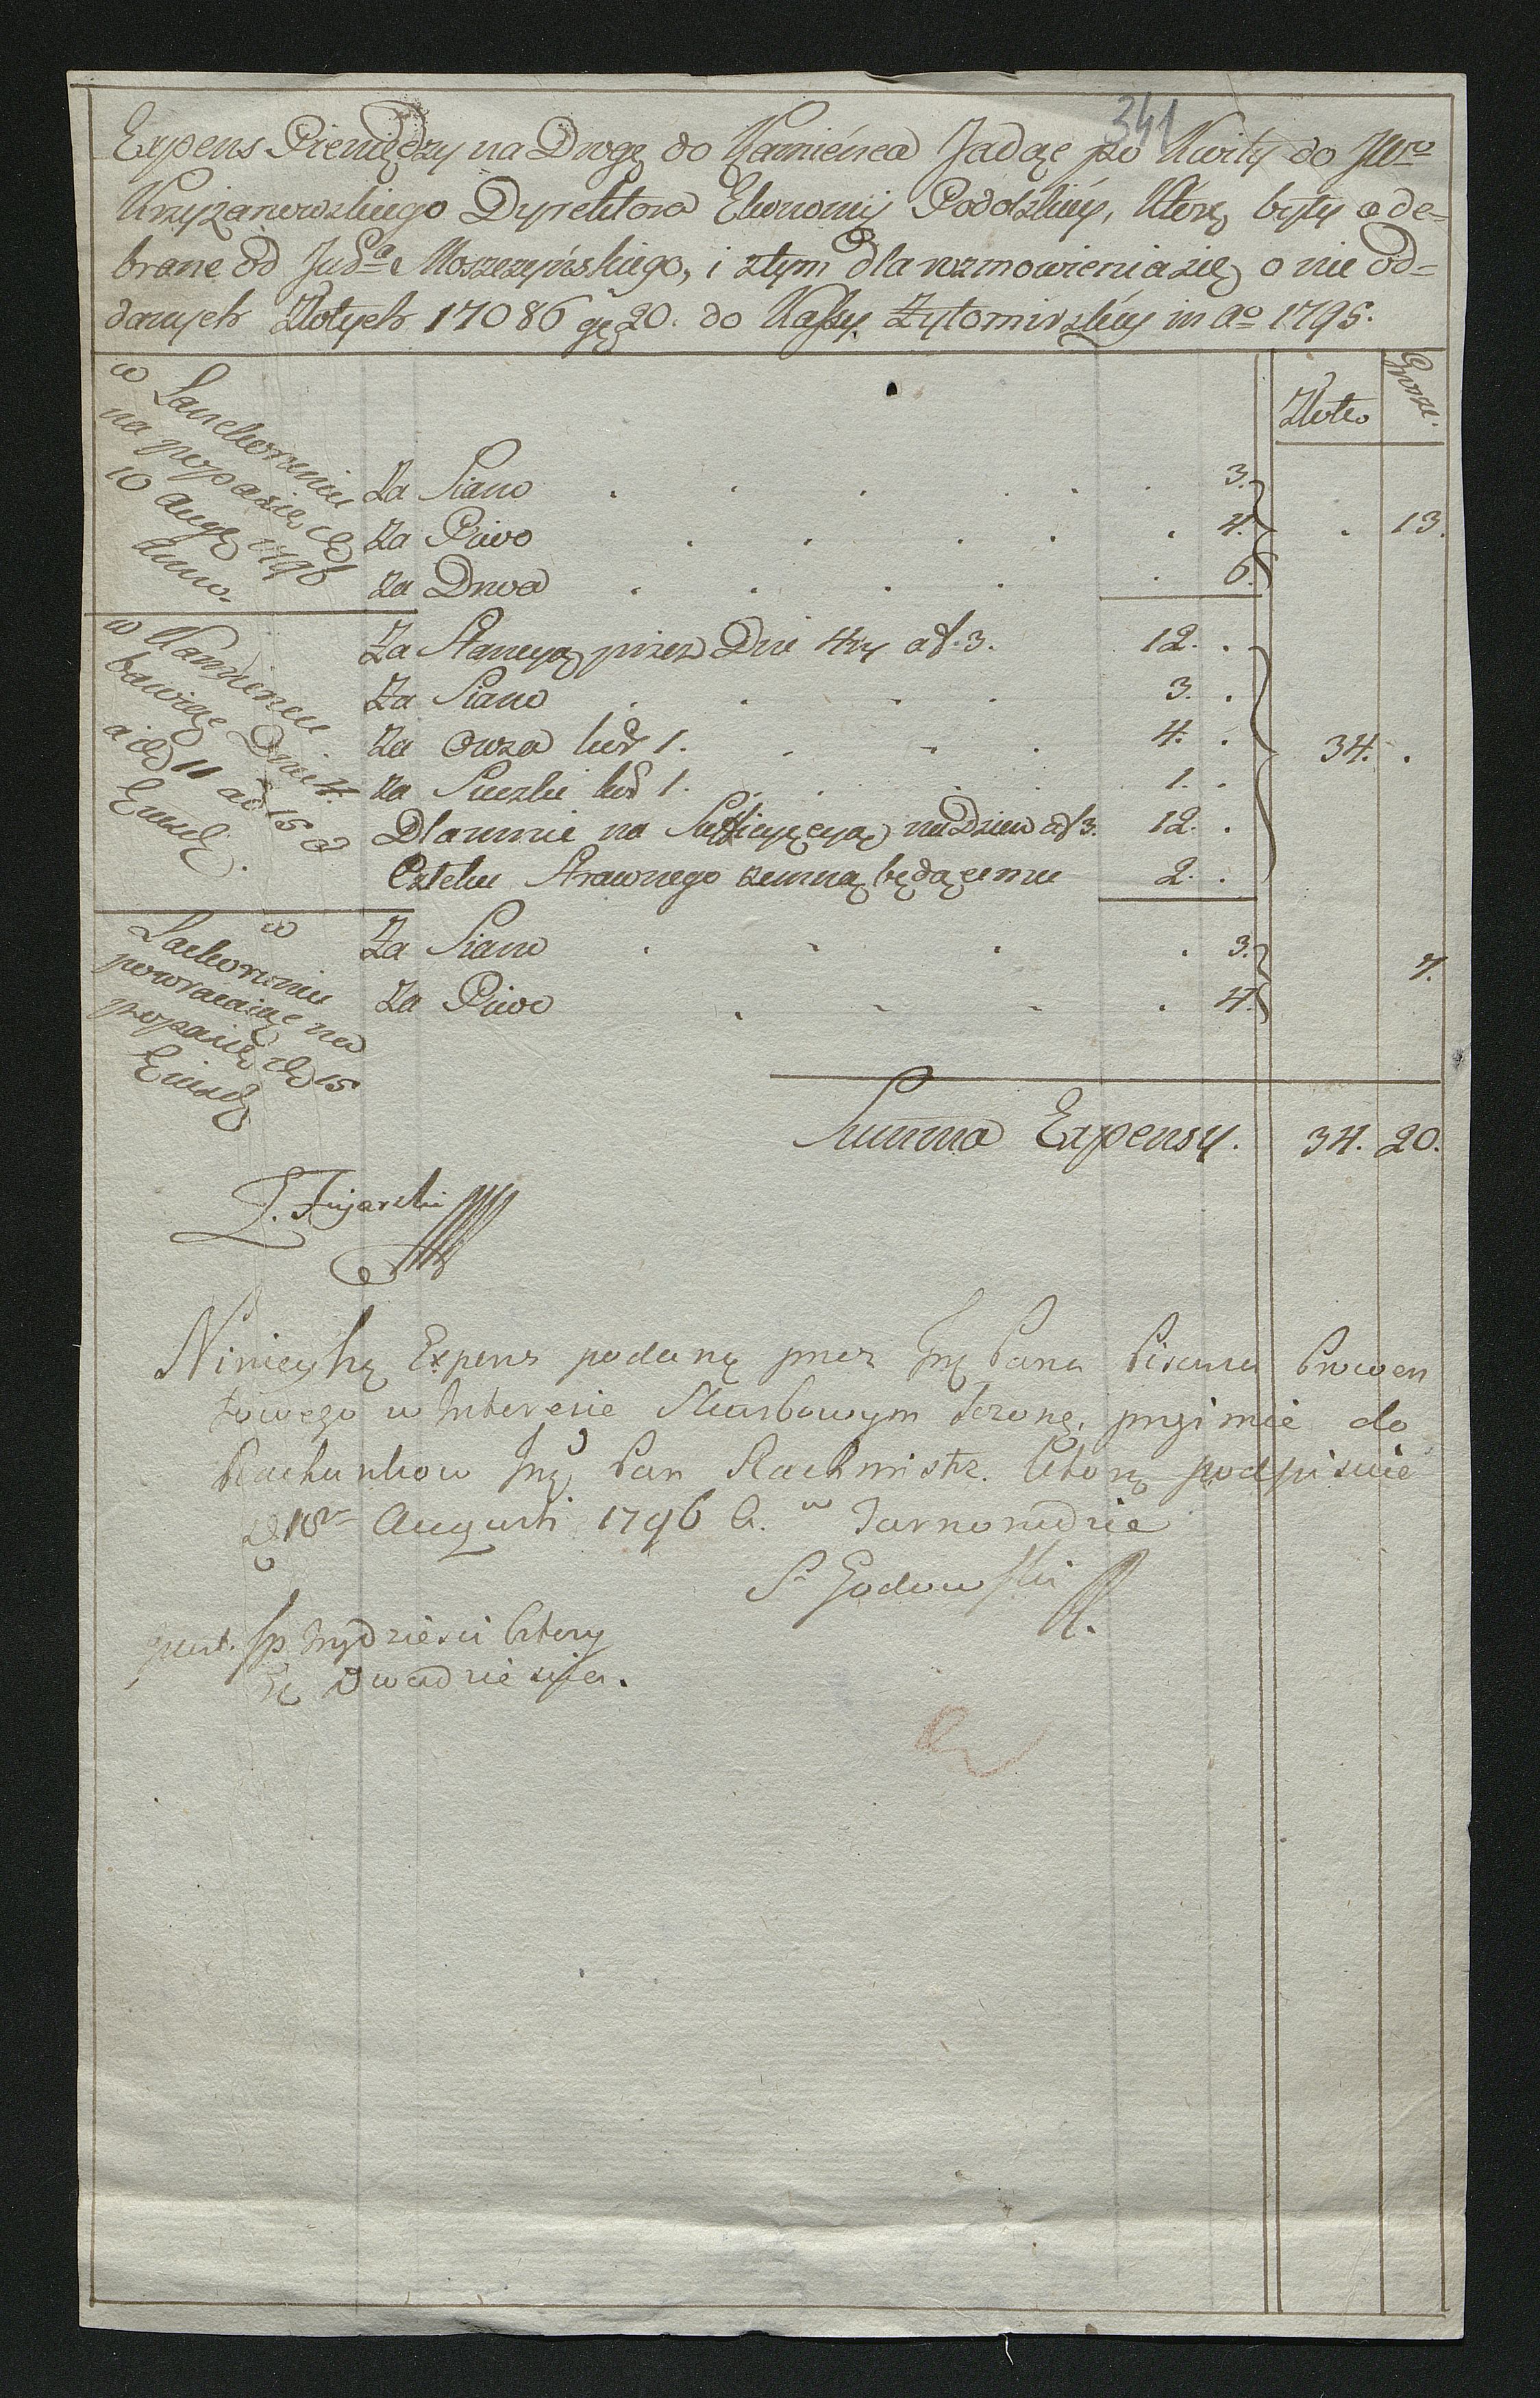 341
Expens Pieniędzy na Drogę do Kamieńca Jadąc po Kwity do JWo
Krzyżanowskiego Dyrektora Ekonomij Podolskiey, które były ode=
brane od Moszczyńskiego, i ztym dla rozmowienia się o nie od=
danych Złotych 17086 gr 20. do Kassy Żytomirskiey in Ao 1795.
Złote Grosze.
w Lanckoruniu
na popasie dd
10 Augt 1796
Anno.
Za Siano . . . . . . 3.
Za Piwo . . . . . 4. . 13.
Za Drwa . . . . . 6.
w Kamieńcu
bawiąc Dni 4.
a dd 11 ad 15 d
Eiusd.
Za Stancyą przez Dni 4ry a f. 3. 12. .
Za Siano . . . . 3. .
Za Owsa kor 1. . . . 4. . 34. .
Za Sieczki kor 1. . . . . 1. .
Dla mnie na na Dzien a f 3. 12. .
Człeku Strawnego zemną będącemu 2. .
w
Lackoruniu
powracaiąc na
popasie dd 15
Eiusd
Za Siano . . . . 3.
Za Piwo . . . . . 4. 7.
Summa Expensy. 34. 20.
J. Fujarski
Ninieyszą Expens podaną przez Jmć Pana Pisarza Prowen
towego w Interesie Skarbowym przyimie do
Rachunkow Jmć Pan Rachmistrz. Którą podpisuie
D 18 Augusti 1796 A. w Tarnorudzie
S Godowski
fp Trzydziesci Cztery
gr Dwadziescia.